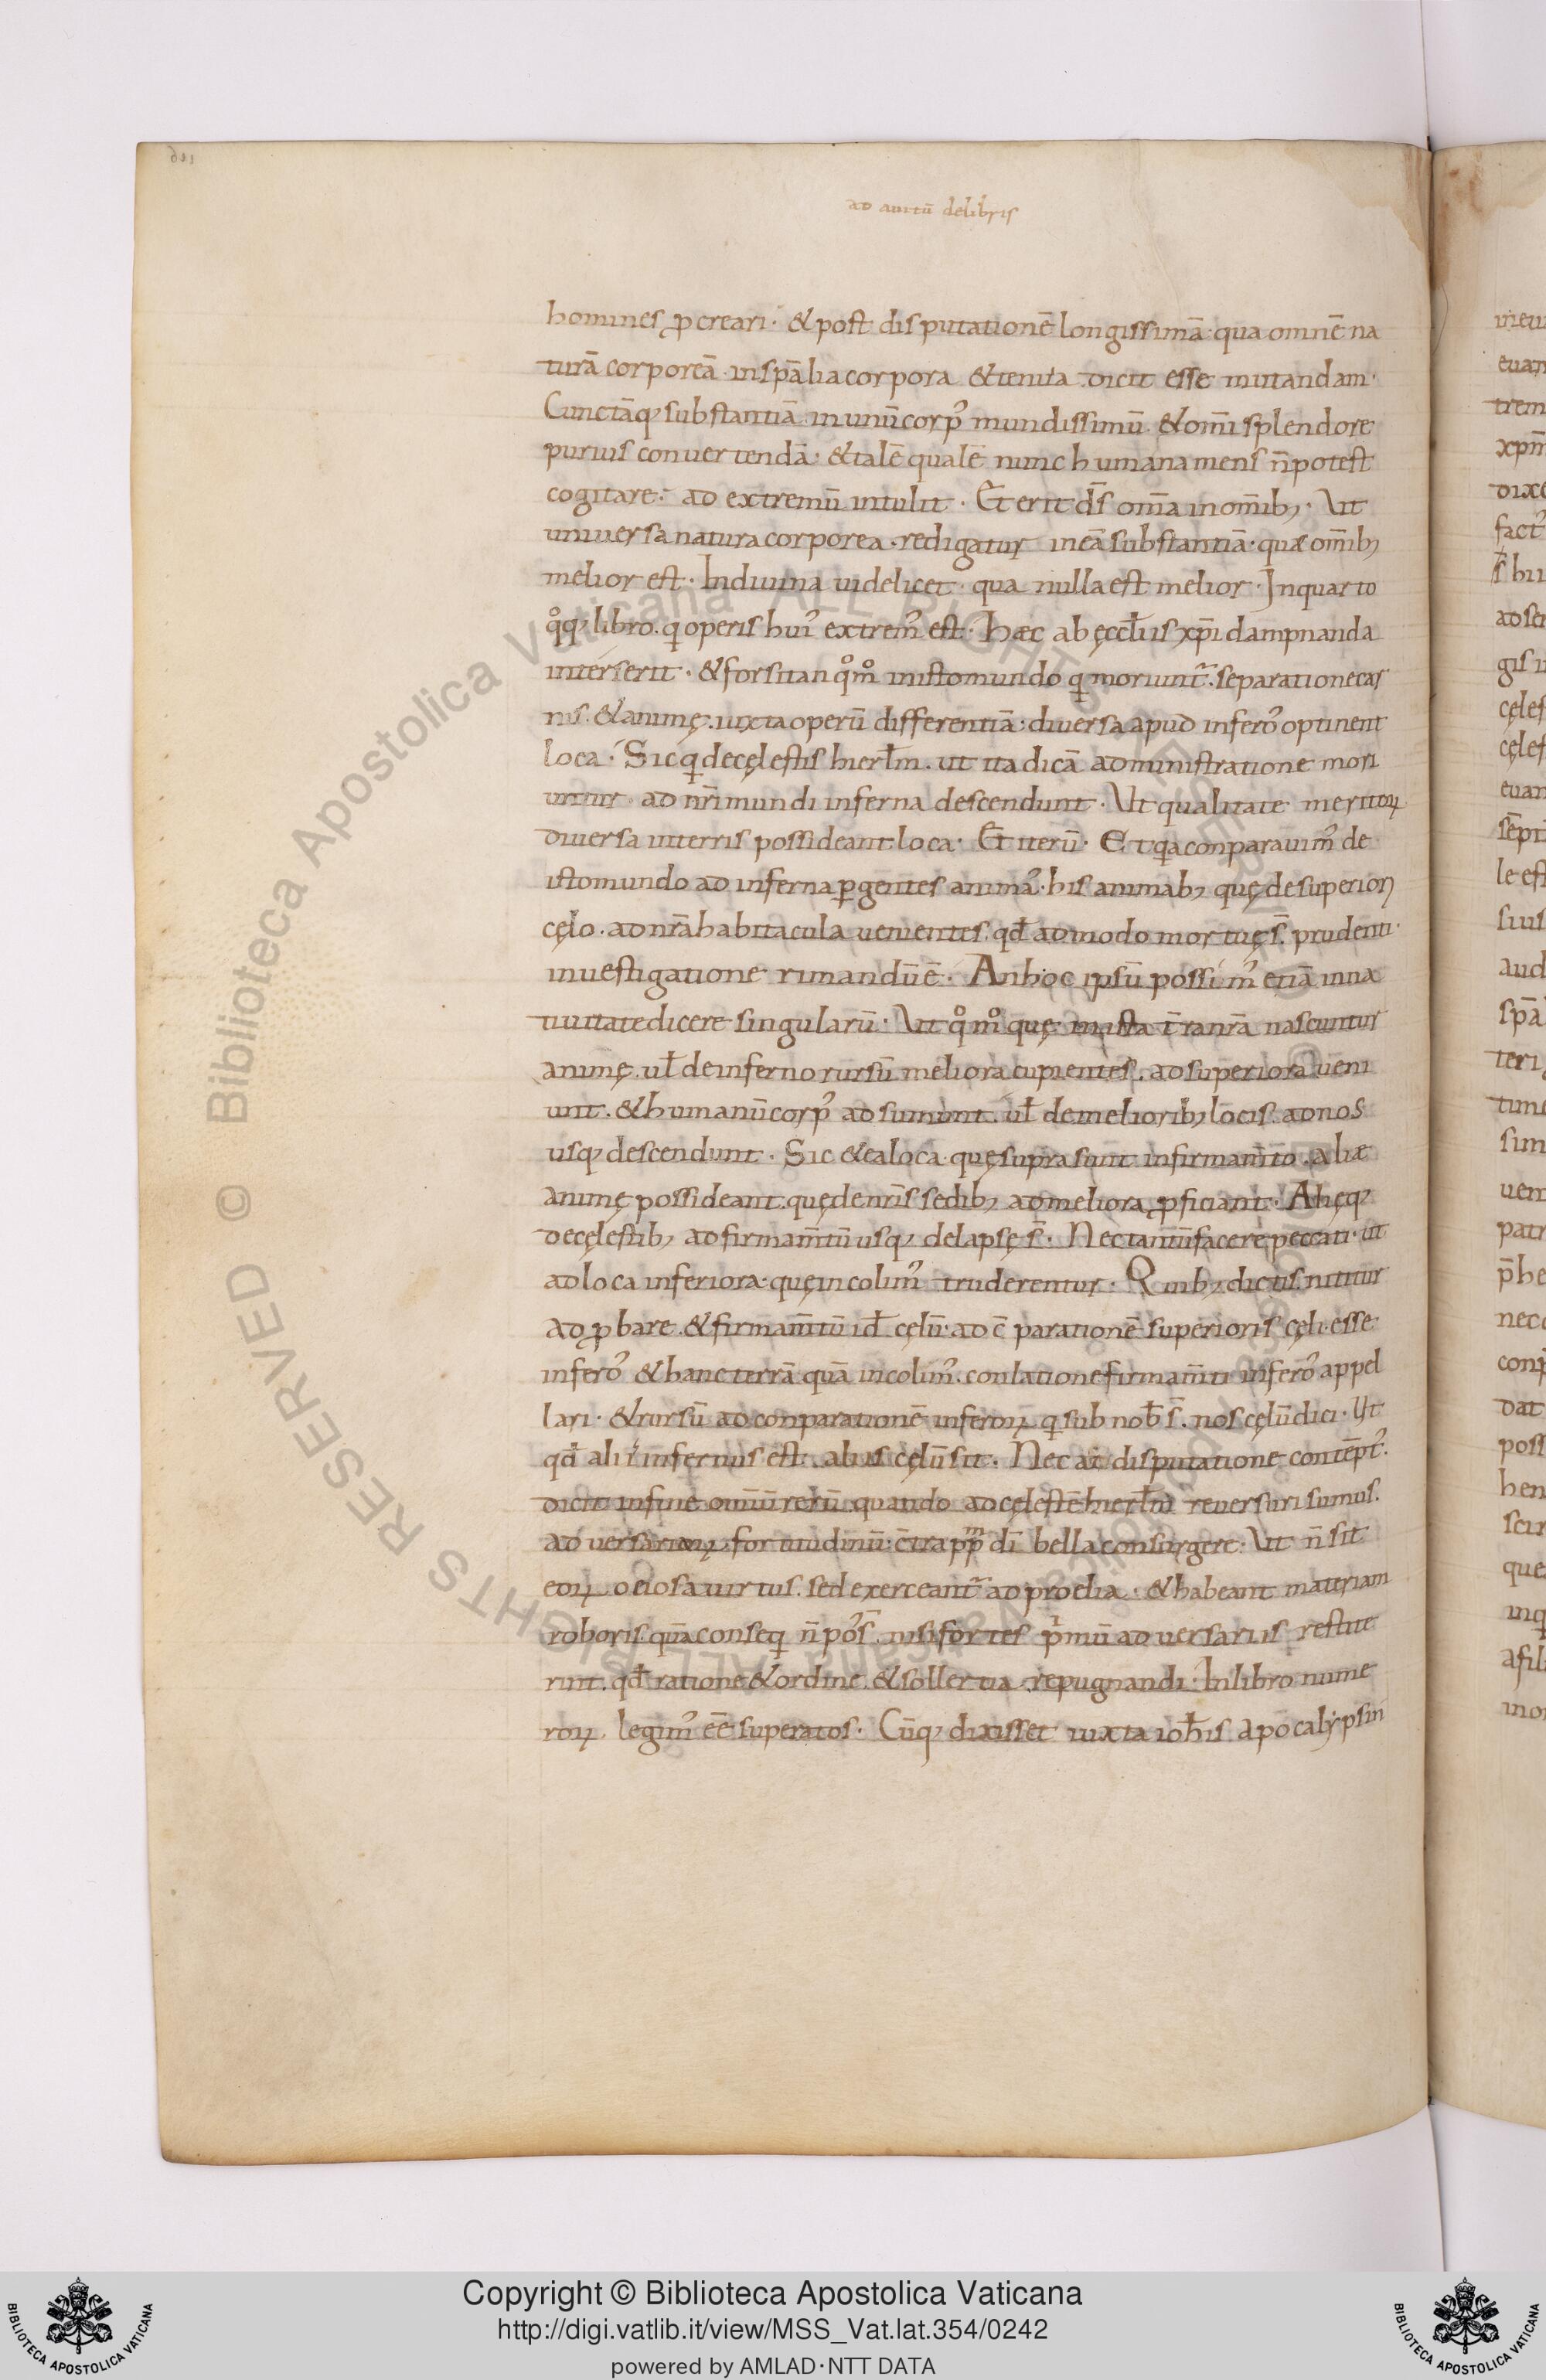 ad auitū delibris
homines ꝓcreari· & post disputationē longissimā· qua omnē na
turā corporeā inspālia corpora & tenuia dicit esse mutandam·
Cunctāq; substantiā in unū corpꝰ mundissimū & om̄i splendore
purius conuertendā· & talē qualē nunc humana mens n̄ potest
cogitare· ad extremū intulit· Et erit d̄s om̄a in om̄ib;· Ut
uniuersa natura corporea· redigatur in eā substantiā· quæ om̄ib;
melior est· In diuina uidelicet· qua nulla est melior· In quarto
qͦq; libro· q operis huiꝰ extremꝰ est· Hæc ab ęccłiis xp̄i dampnanda
interserit· & forsitan qͦmͦ in isto mundo q moriunt̃· separatione car
nis· & animę· iuxta operū differentiā· diuersa apud inferoꝰ optinent
loca· Sic q de cęlestis hierłm· ut ita dicā administratione mori
untur· ad nr̄i mundi inferna descendunt· Ut qualitate meritoꝝ
diuersa in terris possideant loca· Et iterū· Et qa conparauimꝰ de
isto mundo ad inferna ꝑgentes animaꝰ· his animab; quę de superiori
cęlo· ad nr̄a habitacula uenientes· qđ admodo mortuę s̄· prudenti·
inuestigatione rimandū ē· An hoc ipsū possimꝰ etiā in na
tiuitate dicere singularū· Ut qͦmͦ quę in ista t̄ra nr̄a nascuntur
animę· uł de inferno rursū meliora cupientes· ad superiora ueni
unt· & humanū corpꝰ adsumunt· uł de meliorib; locis· ad nos
usq; descendunt· Sic & ea loca quę supra sunt in firmam̄to· aliæ
animę possideant· quę de nr̄is sedib; ad meliora ꝓficiant· Alię q;
de cęlestib; ad firmam̄tū usq; delapsę s̄· Nec tantū facere peccati· ut
ad loca inferiora· quę incolimꝰ truderentur· Quib; dictis· nititur
adꝓbare· & firmam̄tū id cęlū· ad c̄parationē superioris cęli· esse
inferoꝰ & hanc terrā quā incolimꝰ· conlatione firmam̄ti inferoꝰ appel
lari· & rursū ad conparationē inferoꝝ q sub nob̄ s̄· nos cęlū dici· Ut
qđ alii infernus est· aliis cęlū sit· Nec ai disputatione contēptꝰ·
dicit in fine om̄iū rerū· quando ad cęlestē hierłm reuersuri sumus·
aduersarioꝝ fortitudinū· c̄tra ppm̄ di bella consurgere· Ut n̄ sit
eoꝝ ociosa uirtus· sed exerceant̃ ad proelia· & habeant materiam
roboris· quā conseq n̄ poss̄· nisi fortes p̄mū aduersariis restite
rint· qđ ratione & ordine· & sollertia repugnandi· In libro nume
roꝝ· legimꝰ eē superatos· Cūq; dixisset iuxta ioħis apocalypsin
© Biblioteca Apostolica Vaticana ALL RIGHTS RESERVED
Copyright © Biblioteca Apostolica Vaticana
http://digi.vatlib.it/view/MSS_Vat.lat.354/0242
powered by AMLAD·NTT DATA
BIBLIOTECA APOSTOLICA VATICANA
BIBLIOTECA APOSTOLICA VATICANA